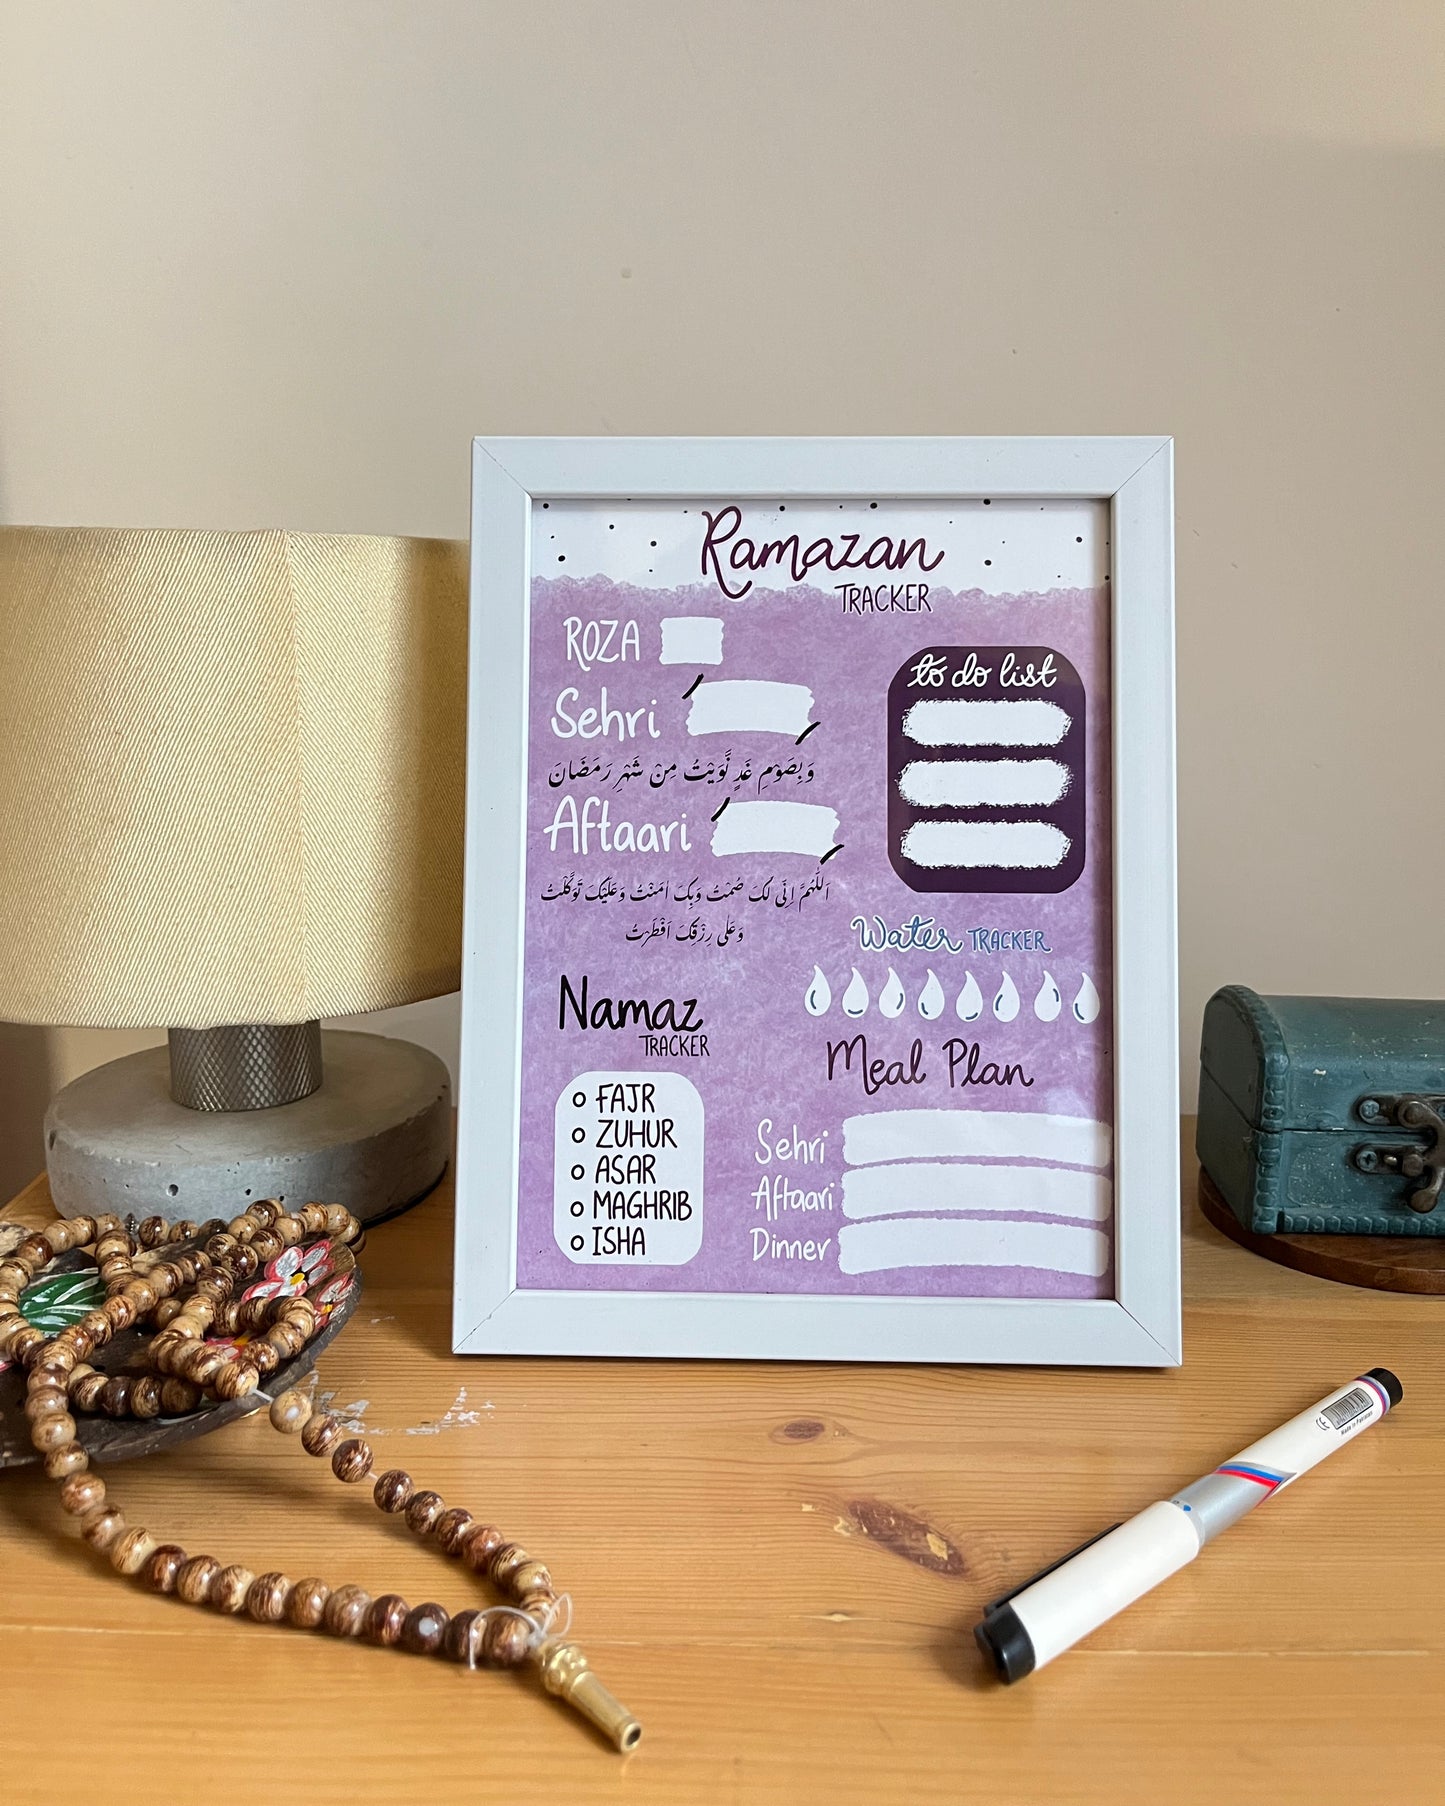 Ramazan
TRACKER
ROZA
Sehri
وَبِصَوْمِ غَدٍ نَّوَيْتُ مِنْ شَهْرِ رَمَضَانَ
Aftaari
اَللّٰهُمَّ اِنِّی لَکَ صُمْتُ وَبِکَ اٰمَنْتُ وَعَلَيْکَ تَوَکَّلْتُ
وَعَلٰی رِزْقِکَ اَفْطَرْتُ
to do list
Water TRACKER
Namaz
TRACKER
FAJR
ZUHUR
ASAR
MAGHRIB
ISHA
Meal Plan
Sehri
Aftaari
Dinner
Made in Pakistan